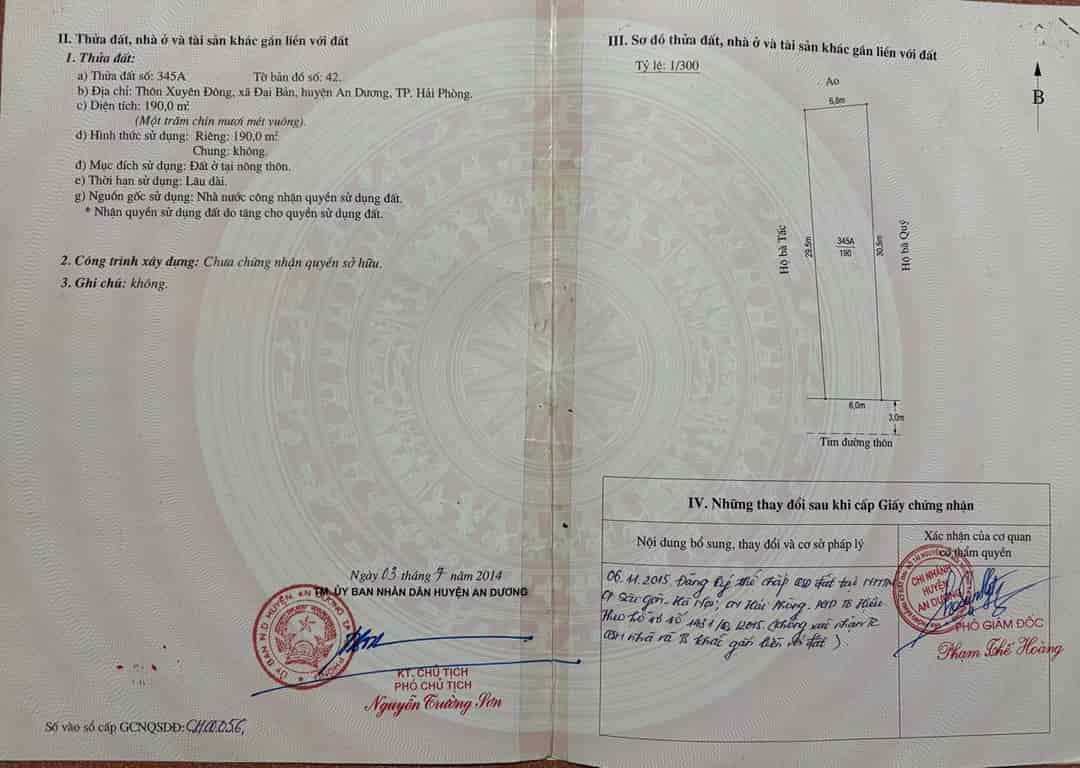 II. Thửa đất, nhà ở và tài sản khác gắn liền với đất
1. Thửa đất:
a) Thửa đất số: 345A Tờ bản đồ số: 42.
b) Địa chỉ: Thôn Xuyên Đông, xã Đại Bản, huyện An Dương, TP. Hải Phòng.
c) Diện tích: 190,0 m²
(Một trăm chín mươi mét vuông).
d) Hình thức sử dụng: Riêng: 190,0 m²
Chung: không.
đ) Mục đích sử dụng: Đất ở tại nông thôn.
e) Thời hạn sử dụng: Lâu dài.
g) Nguồn gốc sử dụng: Nhà nước công nhận quyền sử dụng đất.
* Nhận quyền sử dụng đất do tặng cho quyền sử dụng đất.
2. Công trình xây dựng: Chưa chứng nhận quyền sở hữu.
3. Ghi chú: không.
Ngày 03 tháng 7 năm 2014
TM. ỦY BAN NHÂN DÂN HUYỆN AN DƯƠNG
KT. CHỦ TỊCH
PHÓ CHỦ TỊCH
Nguyễn Trường Sơn
Số vào sổ cấp GCNQSDĐ: CH00056,
III. Sơ đồ thửa đất, nhà ở và tài sản khác gắn liền với đất
Tỷ lệ: 1/300
B
Ao
6,8m
Hộ bà Tác
29,5m
345A
190
30,5m
Hộ bà Quý
6,0m
3,0m
Tim đường thôn
IV. Những thay đổi sau khi cấp Giấy chứng nhận
Nội dung bổ sung, thay đổi và cơ sở pháp lý
Xác nhận của cơ quan
có thẩm quyền
06.11.2015 Đăng ký thế chấp QSD đất tại NHTM
CP Sài Gòn - Hà Nội, CN Hải Phòng.
theo hồ sơ số
nhà và TS khác gắn liền với đất).
CHI NHÁNH
HUYỆN
AN DƯƠNG
PHÓ GIÁM ĐỐC
Phạm Thế Hoàng